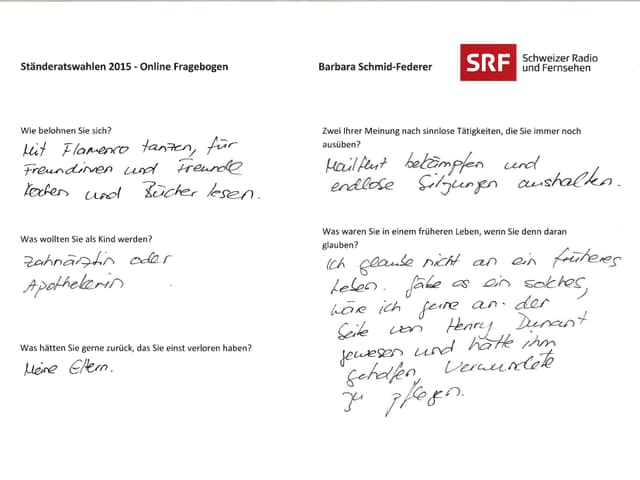 Ständeratswahlen 2015 - Online Fragebogen
Barbara Schmid-Federer
SRF Schweizer Radio
und Fernsehen
Wie belohnen Sie sich?
Mit Flamenco tanzen, für
Freundinnen und Freunde
kochen und Bücher lesen.
Was wollten Sie als Kind werden?
Zahnärztin oder
Apothekerin
Was hätten Sie gerne zurück, das Sie einst verloren haben?
Meine Eltern.
Zwei Ihrer Meinung nach sinnlose Tätigkeiten, die Sie immer noch
ausüben?
Mailflut bekämpfen und
endlose Sitzungen aushalten.
Was waren Sie in einem früheren Leben, wenn Sie denn daran
glauben?
Ich glaube nicht an ein früheres
Leben. Gäbe es ein solches,
wäre ich gerne an der
Seite von Henry Dunant
gewesen und hätte ihm
geholfen, Verwundete
zu pflegen.